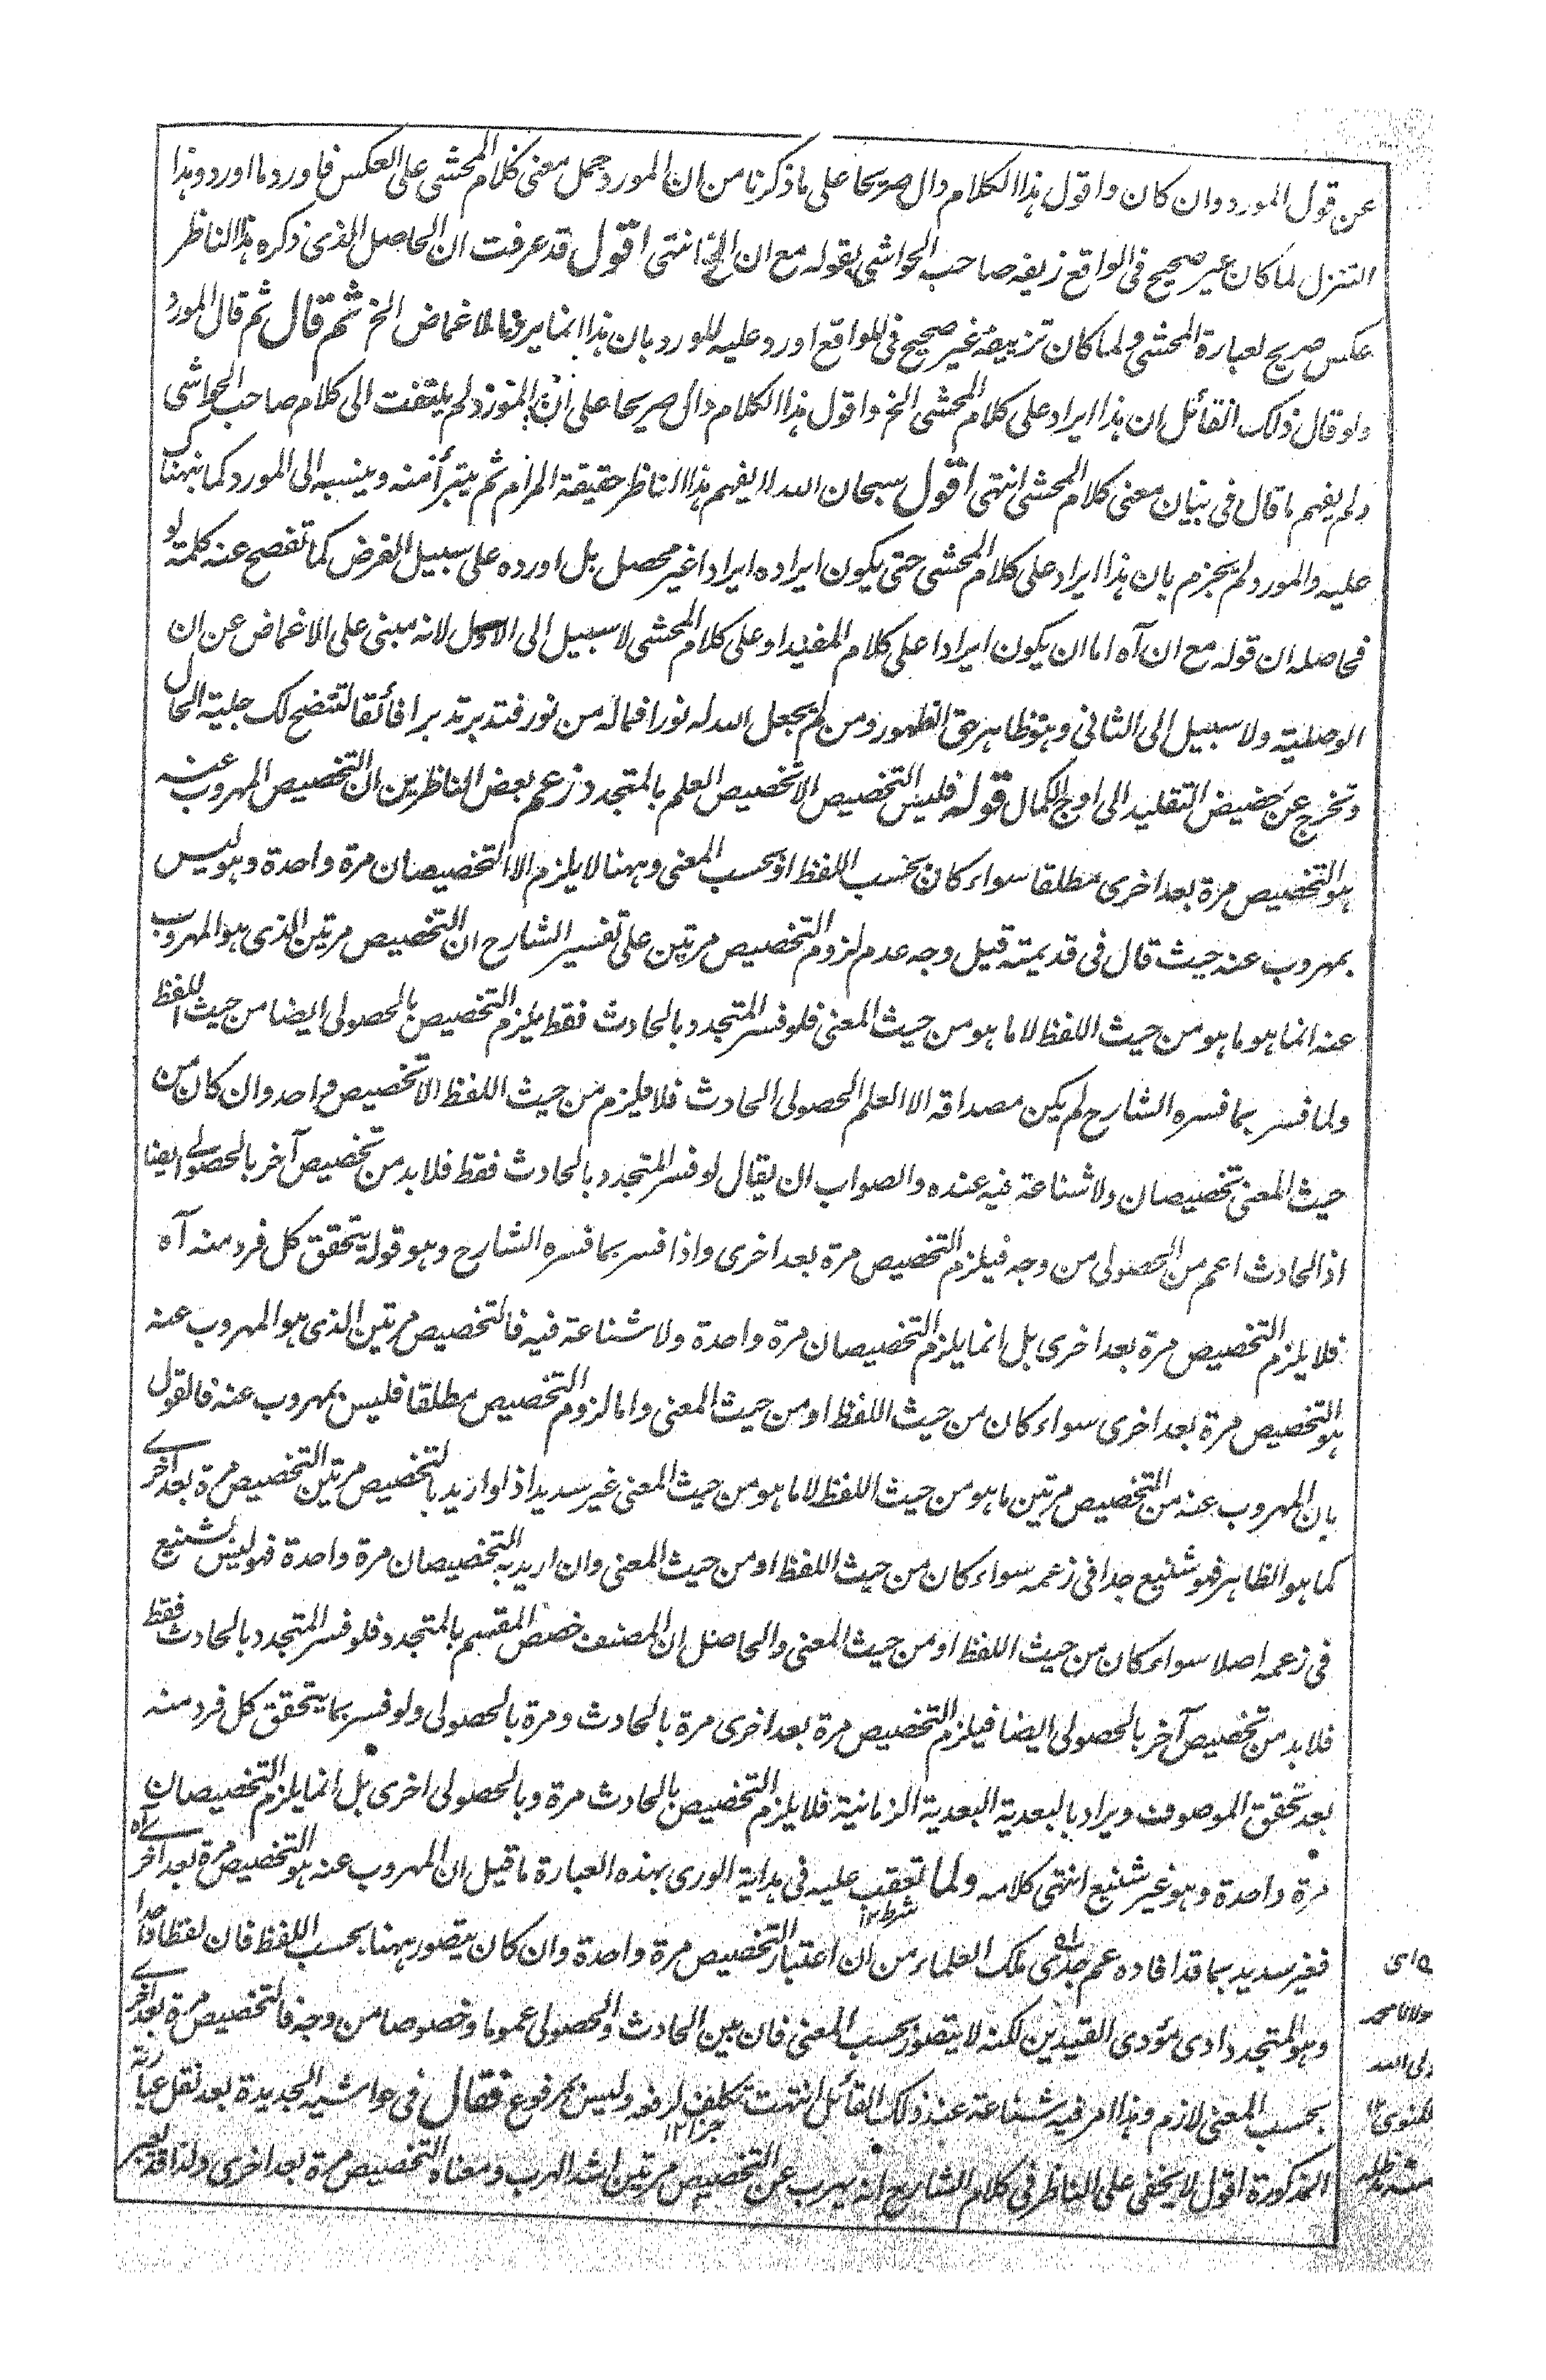 عن قول المورد وان كان واقول هذا الكلام دال صريحا على ما ذكرنا من ان المورد حمل معنى كلام المحشى على العكس فاورد ما اورد وهذا
التنزل لما كان غير صحيح فى الواقع زيفه صاحب الحواشى بقوله مع ان الخ انتهى اقول قد عرفت ان الحاصل الذى ذكره هذا الناظر
عكس صريح لعبارة المحشى ولما كان تزييفه غير صحيح فى الواقع اورد عليه المورد بان هذا انما يرد الاغماض الخ ثم قال ثم قال المورد
ولو قال ذلك القائل ان هذا ايراد على كلام المحشى الخ واقول هذا الكلام دال صريحا على ان المورد لم يلتفت الى كلام صاحب الحواشى
ولم يفهم ما قال فى بيان معنى كلام المحشى انتهى اقول سبحان الله لا يفهم هذا الناظر حقيقة المرام ثم يتبرأ منه وينسبه الى المورد كما نبهناك
عليه والمورد لم يجزم بان هذا ايراد على كلام المحشى حتى يكون ايراده ايرادا غير محصل بل اورده على سبيل الفرض كما تفصح عنه كلمة لو
فحاصله ان قوله مع ان آه اما ان يكون ايرادا على كلام المفيد او على كلام المحشى لا سبيل الى الاول لانه مبنى على الاغماض عن ان
الوصلية ولا سبيل الى الثانى وهو ظاهر حق الظهور ومن لم يجعل الله له نورا فماله من نور فتدبر تدبرا فائقا لتتضح لك جلية الحال
وتخرج عن حضيض التقليد الى اوج الكمال قوله فليس التخصيص الا تخصيص العلم بالمتجدد زعم بعض الناظرين ان التخصيص المهروب عنه
هو التخصيص مرة بعد اخرى مطلقا سواء كان بحسب اللفظ او بحسب المعنى وههنا لا يلزم الا التخصيصان مرة واحدة وهو ليس
بمهروب عنه حيث قال فى قديمته قيل وجه عدم لزوم التخصيص مرتين على تفسير الشارح ان التخصيص مرتين الذى هو المهروب
عنه انما هو ما هو من حيث اللفظ لا ما هو من حيث المعنى فلو فسر المتجدد بالحادث فقط يلزم التخصيص بالحصولى ايضا من حيث اللفظ
ولما فسر بما فسره الشارح لم يكن مصداقه الا العلم الحصولى الحادث فلا يلزم من حيث اللفظ الا تخصيص واحد وان كان من
حيث المعنى تخصيصان ولا شناعة فيه عنده والصواب ان يقال لو فسر المتجدد بالحادث فقط فلا بد من تخصيص آخر بالحصولى ايضا
اذ الحادث اعم من الحصولى من وجه فيلزم التخصيص مرة بعد اخرى واذا فسر بما فسره الشارح وهو قوله يتحقق كل فرد منه آه
فلا يلزم التخصيص مرة بعد اخرى بل انما يلزم التخصيصان مرة واحدة ولا شناعة فيه فالتخصيص مرتين الذى هو المهروب عنه
هو التخصيص مرة بعد اخرى سواء كان من حيث اللفظ او من حيث المعنى واما لزوم التخصيص مطلقا فليس بمهروب عنه فالقول
بان المهروب عنه من التخصيص مرتين ما هو من حيث اللفظ لا ما هو من حيث المعنى غير سديد اذ لو اريد بالتخصيص مرتين التخصيص مرة بعد اخرى
كما هو الظاهر فهو شنيع جدا فى زعمه سواء كان من حيث اللفظ او من حيث المعنى وان اريد به التخصيصان مرة واحدة فهو ليس بشنيع
فى زعمه اصلا سواء كان من حيث اللفظ او من حيث المعنى والحاصل ان المصنف خصص المقسم بالمتجدد فلو فسر المتجدد بالحادث فقط
فلا بد من تخصيص آخر بالحصولى ايضا فيلزم التخصيص مرة بعد اخرى مرة بالحادث ومرة بالحصولى ولو فسر بما يتحقق كل فرد منه
بعد تحقق الموصوف ويراد بالبعدية البعدية الزمانية فلا يلزم التخصيص بالحادث مرة وبالحصولى اخرى بل انما يلزم التخصيصان
مرة واحدة وهو غير شنيع انتهى كلامه ولما تعقب عليه فى هداية الورى بهذه العبارة ما قيل ان المهروب عنه هو التخصيص مرة بعد اخرى آه
شرط ١٢
فغير سديد بما قد افاده عم جدى ملك العلماء من ان اعتبار التخصيص مرة واحدة وان كان يتصور ههنا بحسب اللفظ فان لفظا واحدا
وهو المتجدد ادى مؤدى القيدين لكنه لا يتصور بحسب المعنى فان بين الحادث والحصولى عموما وخصوصا من وجه فالتخصيص مرة بعد اخرى
بحسب المعنى لازم وهذا امر فيه شناعة عند ذلك القائل انتهت تكلف لرفعه وليس بمرفوع فقال فى حواشيه الجديدة بعد نقل عبارته
جزا ١٢
المذكورة اقول لا يخفى على الناظر فى كلام الشارح انه يهرب عن التخصيص مرتين اشد الهرب ومعناه التخصيص مرة بعد اخرى ولذا قد
اى
مولانا محمد
ولى الله
اللكنوى ١٢
منه مدظله